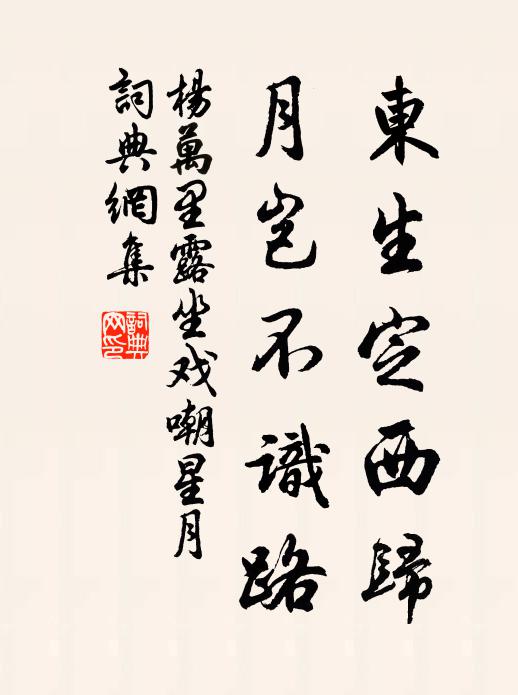 東生定西歸
月岂不識路
楊萬里露坐戏嘲星月
詞典網集
詞典
网印